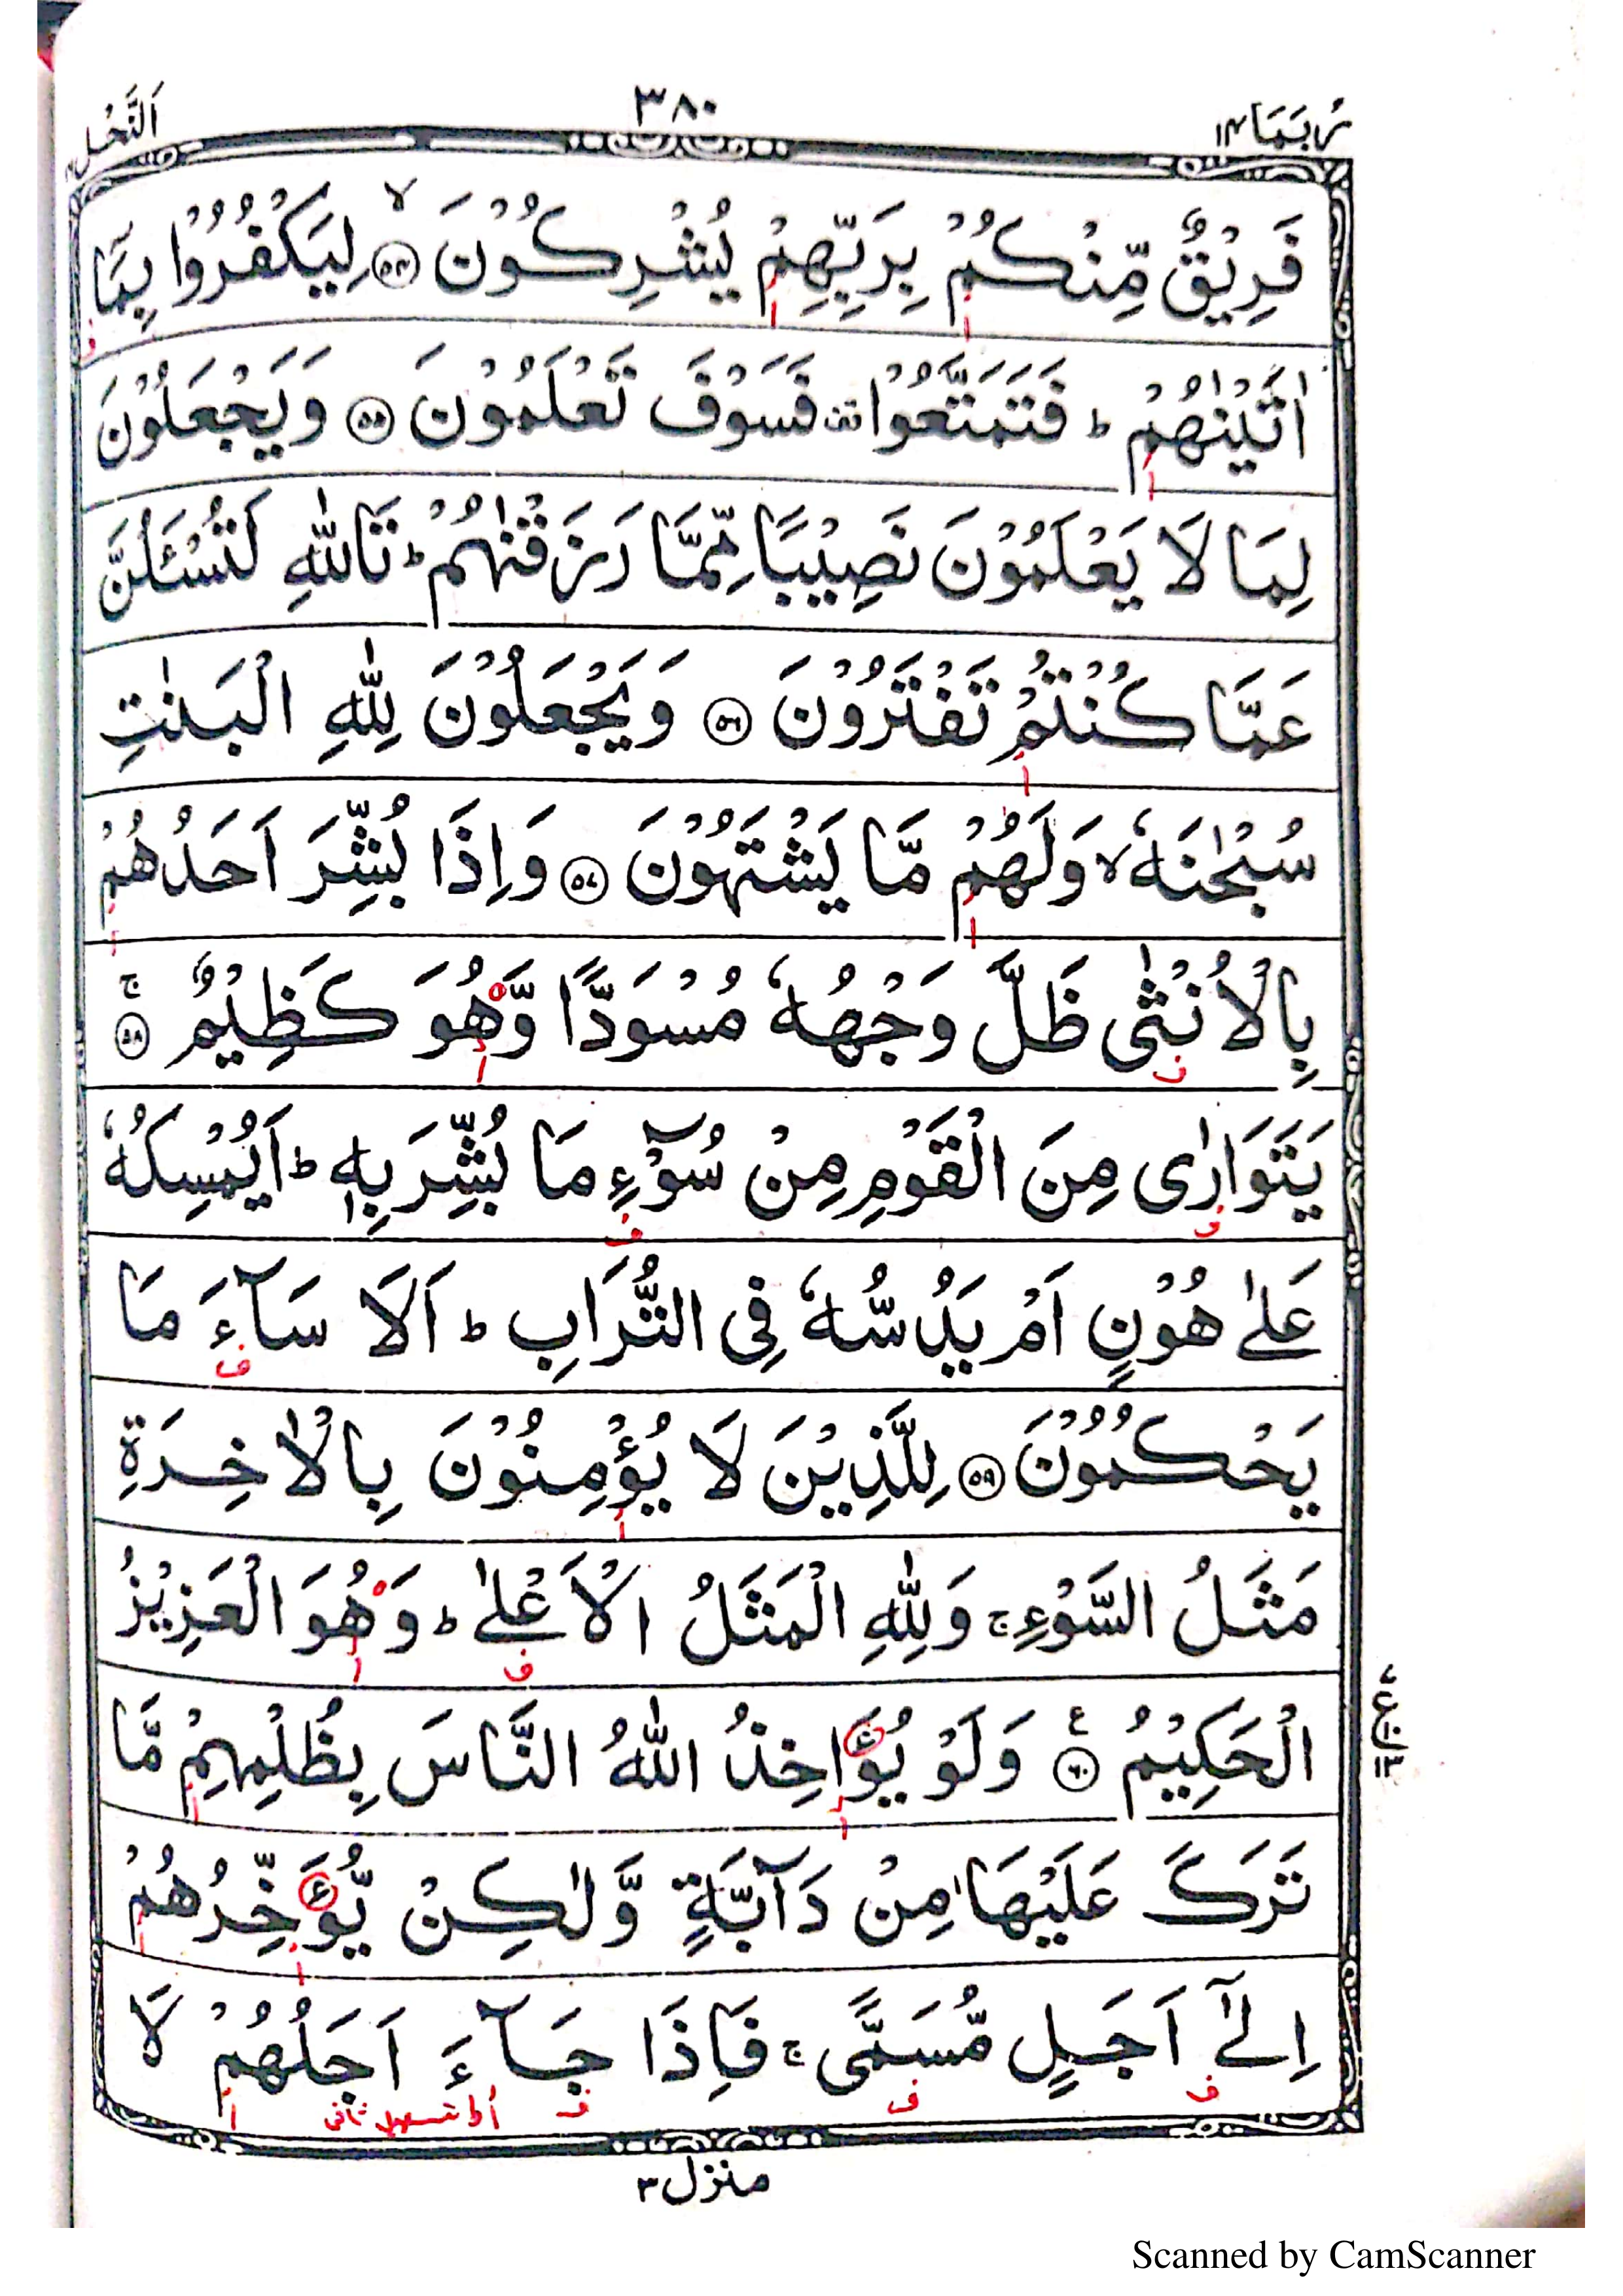 رُبَمَا ١٤
٣٨٠
اَلنَّحْل
فَرِيْقٌ مِّنْكُمْ بِرَبِّهِمْ يُشْرِكُوْنَ ﴿٥٤﴾ۙ لِيَكْفُرُوْا بِمَآ
اٰتَيْنٰهُمْ ؕ فَتَمَتَّعُوْا ۟ فَسَوْفَ تَعْلَمُوْنَ ﴿٥٥﴾ وَيَجْعَلُوْنَ
لِمَا لَا يَعْلَمُوْنَ نَصِيْبًا مِّمَّا رَزَقْنٰهُمْ ؕ تَاللّٰهِ لَتُسْـَٔلُنَّ
عَمَّا كُنْتُمْ تَفْتَرُوْنَ ﴿٥٦﴾ وَيَجْعَلُوْنَ لِلّٰهِ الْبَنٰتِ
سُبْحٰنَهٗ ۙ وَلَهُمْ مَّا يَشْتَهُوْنَ ﴿٥٧﴾ وَاِذَا بُشِّرَ اَحَدُهُمْ
بِالْاُنْثٰى ظَلَّ وَجْهُهٗ مُسْوَدًّا وَّهُوَ كَظِيْمٌ ﴿٥٨﴾ۚ
يَتَوَارٰى مِنَ الْقَوْمِ مِنْ سُوْٓءِ مَا بُشِّرَ بِهٖ ؕ اَيُمْسِكُهٗ
عَلٰى هُوْنٍ اَمْ يَدُسُّهٗ فِى التُّرَابِ ؕ اَلَا سَآءَ مَا
يَحْكُمُوْنَ ﴿٥٩﴾ لِلَّذِيْنَ لَا يُؤْمِنُوْنَ بِالْاٰخِرَةِ
مَثَلُ السَّوْءِ ۚ وَلِلّٰهِ الْمَثَلُ الْاَعْلٰى ؕ وَهُوَ الْعَزِيْزُ
الْحَكِيْمُ ﴿٦٠﴾ۧ وَلَوْ يُؤَاخِذُ اللّٰهُ النَّاسَ بِظُلْمِهِمْ مَّا
تَرَكَ عَلَيْهَا مِنْ دَآبَّةٍ وَّلٰكِنْ يُّؤَخِّرُهُمْ
اِلٰٓى اَجَلٍ مُّسَمًّى ۚ فَاِذَا جَآءَ اَجَلُهُمْ لَا
اط تسهيل ثانى
منزل ٣
Scanned by CamScanner